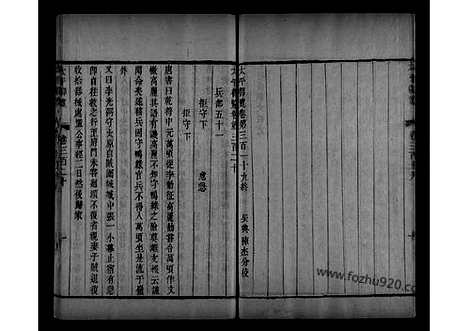 太平御覽卷第三百一十九終
吳興 陳杰分校
太平御覽卷第三百二十
兵部五十一
拒守下
拒守下
唐書曰乾封中元萬頃從李勣征高麗勣嘗令萬頃作文
檄高麗其語有譏高麗不知守鴨綠之險莫離支報云謹
聞命矣遂移兵固守鴨綠官兵不得入萬頃坐是流于嶺
外
又曰李光弼守太原自賊圍城城中張一小幕止宿有急
即自往救之行至府門未嘗迴顧不復省視妻子賊退後
收拾器械處置公事經二日然後歸家
www.fozhu920.com